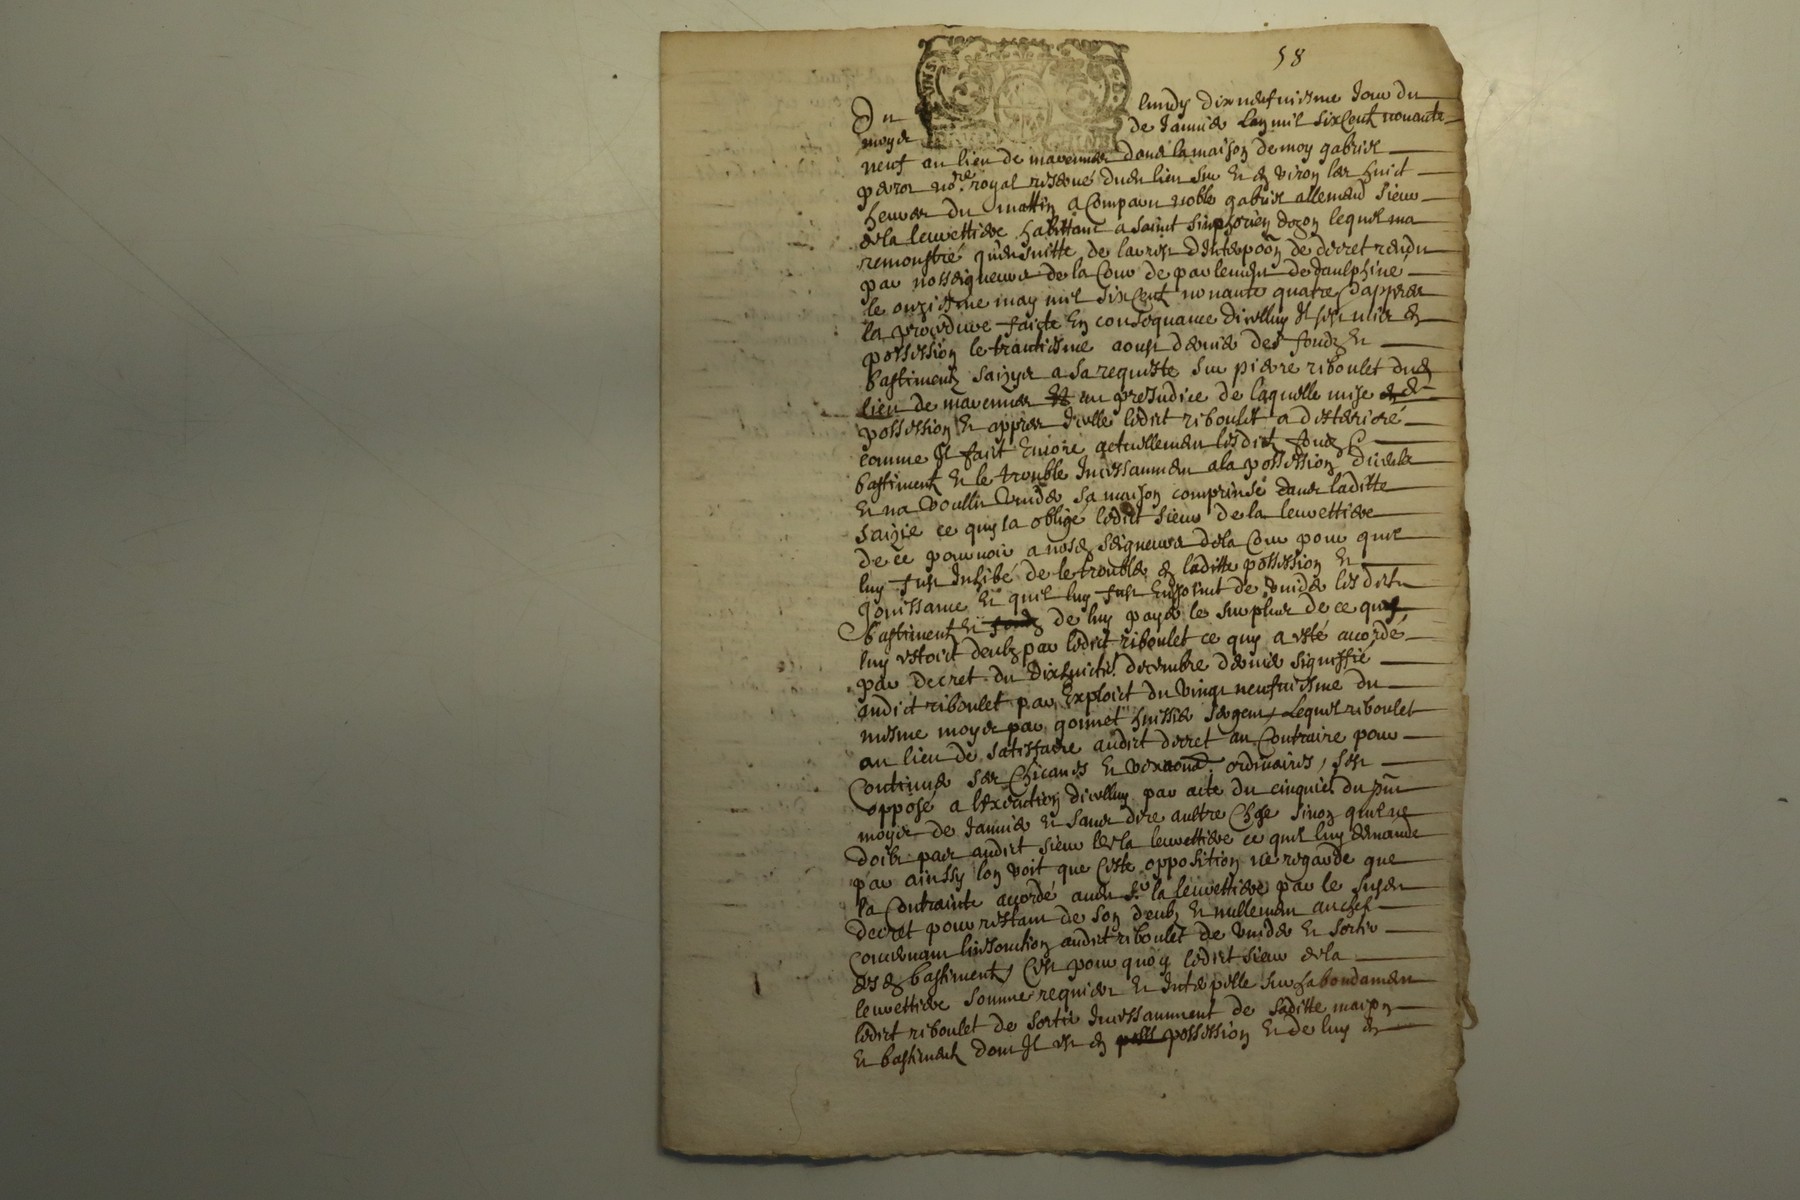 58
Du lundy dixneufuiesme Jour du
moys de Januier Lan mil six Cent nonante
neuf au lieu de marennes dans la maison de moy gabriel
peron no.re royal reserué dudit lieu sur les enuiron les huict
heures du mattin a Comparu noble gabriel allemend sieur
de la leuuettiere habittant a saint simphorien dozon lequel ma
remonstré quen suitte de larrest dinterpoon de decret rendu
par nosseigneurs de la Cour de parlement de daulphiné
le onziesme may mil six Cent nonante quatre dappres
la procedure faicte en consequance dicelluy Il fust mis en
possession le trantiesme aoust dernier des fondz et
bastimentz saizys a sa requiste sur pierre riboulet dudit
lieu de marennes au preJudice de laquelle mise en
possession et appres Icelle ledict riboulet a desterioré
comme Il faict Encore actuellement lesdictz fondz et
bastimentz et le trouble Incessamment a la possession diceux
et na voullu vuider sa maison comprinse dans laditte
saizie ce quy la obligé ledict sieur de la leuuettiere
de ce pouruoir a nosdits seigneurs de la Cour pour quil
luy fust Inhibé de le troubler en laditte possession et
Jouissance et quil luy fust Enjoint de vuider lesdicts
bastimentz et de luy payer le surplus de ce quil
luy estoict deubz par ledict riboulet ce quy a esté accordé
par decret du dixhuictie. decembre dernier signiffié
audict riboulet par Exploict du vingt neufuiesme du
mesme moys par gonnet huissier sergent Lequel riboulet
au lieu de satisfaire audict decret au Contraire pour
Continuer ses Chicanes et vexaons ordinaires, sest
opposé a lexecution dicelluy par acte du cinquie. du pnt
moys de Januier et sans dire aultre Chose sinon quil ne
doibt pas audict sieur de la leuuettiere ce quil luy demande
par ainssy lon voit que Ceste opposition ne regarde que
la Contrainte accordé audit sr la leuuettiere par le susdit
decret pour restant de son deub et nullement au chef
concernant linjonction audict riboulet de vuider et sortir
desdits bastimentz Cest pour quoy ledict sieur de la
leuuettiere somme requiert et Interpelle surhabondament
ledict riboulet de sortir Incessamment de saditte maison
et bastimentz dont Il est en possession et de luy en